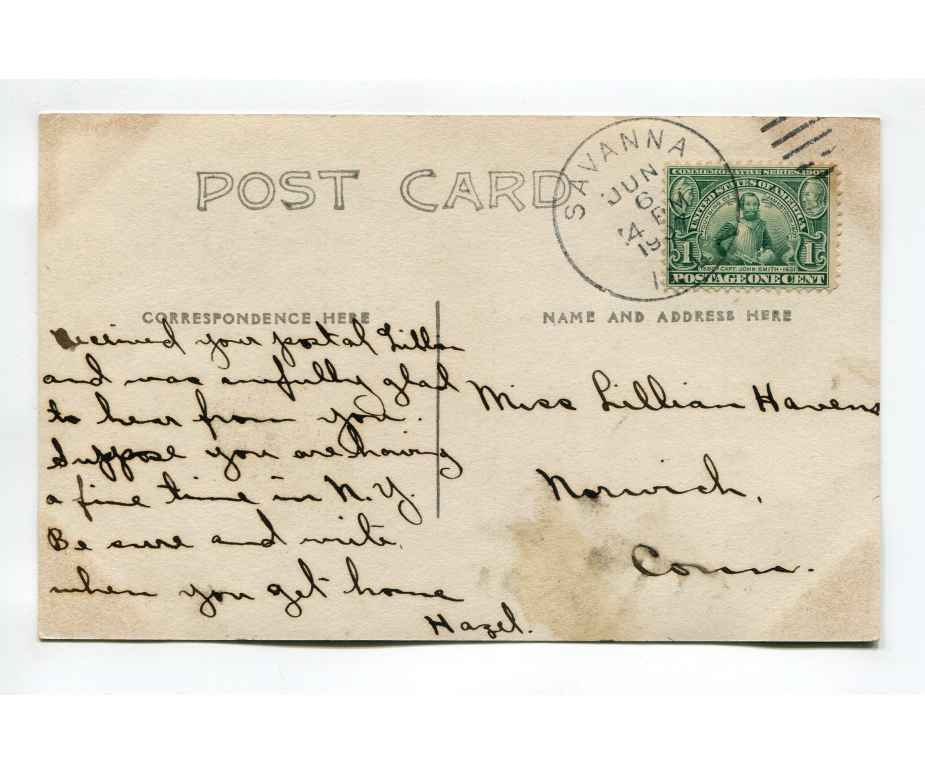 POST CARD
SAVANNA
JUN
6
4 PM
19
COMMEMORATIVE SERIES 1907
UNITED STATES OF AMERICA
1 1
1580 CAPT. JOHN SMITH 1631
POSTAGE ONE CENT
CORRESPONDENCE HERE
NAME AND ADDRESS HERE
Received your postal Lillian
and was awfully glad
to hear from you.
Suppose you are having
a fine time in N.Y.
Be sure and write
when you get home
Hazel.
Miss Lillian Havens
Norwich,
Conn.